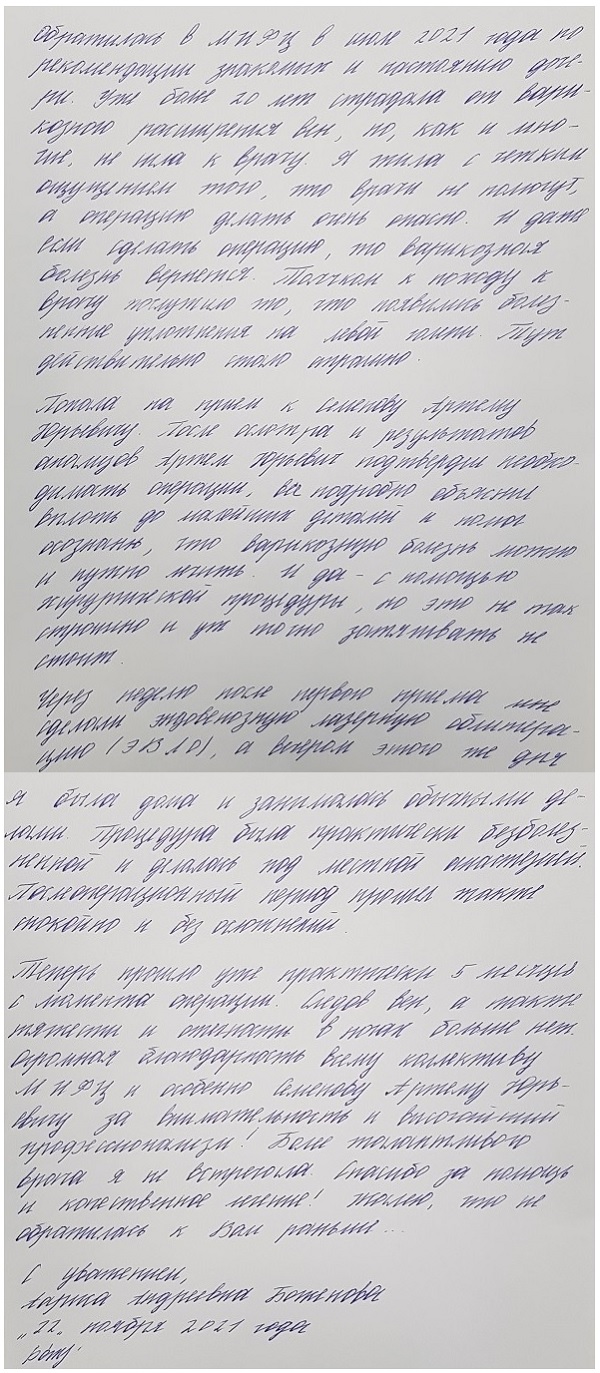 Обратилась в МИФЦ в июле 2021 года по
рекомендации знакомых и настоянию доче-
ри. Уже более 20 лет страдала от вари-
козного расширения вен, но, как и мно-
гие, не шла к врачу. Я жила с четким
ощущением того, что врачи не помогут,
а операцию делать очень опасно. И даже
если сделать операцию, то варикозная
болезнь вернется. Толчком к походу к
врачу послужило то, что появились болез-
ненные уплотнения на левой голени. Тут
действительно стало страшно.
Попала на прием к Семенову Артему
Юрьевичу. После осмотра и результатов
анализов Артем Юрьевич подтвердил необхо-
димость операции, все подробно объяснил
вплоть до малейших деталей и помог
осознать, что варикозную болезнь можно
и нужно лечить. И да - с помощью
хирургической процедуры, но это не так
страшно и уж точно затягивать не
стоит.
Через неделю после первого приема мне
сделали эндовенозную лазерную облитера-
цию (ЭВЛО), а вечером этого же дня
я была дома и занималась обычными де-
лами. Процедура была практически безболез-
ненной и делалась под местной анастезией.
Послеоперационный период прошел также
спокойно и без осложнений.
Теперь прошло уже практически 5 месяцев
с момента операции. Следов вен, а также
тяжести и отечности в ногах больше нет.
Огромная благодарность всему коллективу
МИФЦ и особенно Семенову Артему Юрь-
евичу за внимательность и высочайший
профессионализм! Более талантливого
врача я не встречала. Спасибо за помощь
и качественное лечение! Жалею, что не
обратилась к Вам раньше...
С уважением,
Лариса Андреевна Боженова
„22„ ноября 2021 года